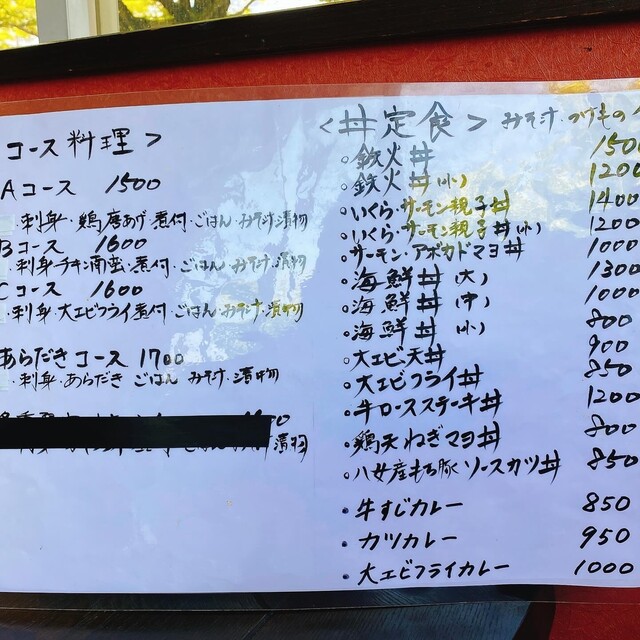 コース料理>
Aコース 1500
刺身・鶏唐あげ・煮付・ごはん・みそ汁・漬物
Bコース 1600
刺身・チキン南蛮・煮付・ごはん・みそ汁・漬物
Cコース 1600
刺身・大エビフライ・煮付・ごはん・みそ汁・漬物
あらだきコース 1700
刺身・あらだき ごはん みそ汁・漬物
漬物
<丼定食> みそ汁・つけもの
。鉄火丼 1500
。鉄火丼(小) 1200
。いくら・サーモン親子丼 1400
。いくら・サーモン親子丼(小) 1200
サーモン・アボカドマヨ丼 1000
。海鮮丼(大) 1300
。海鮮丼(中) 1000
。海鮮丼(小) 800
。大エビ天丼 900
。大エビフライ丼 850
。牛ロースステーキ丼 1200
。鶏天ねぎマヨ丼 800
。八女産もち豚ソースカツ丼 850
・牛すじカレー 850
・カツカレー 950
・大エビフライカレー 1000